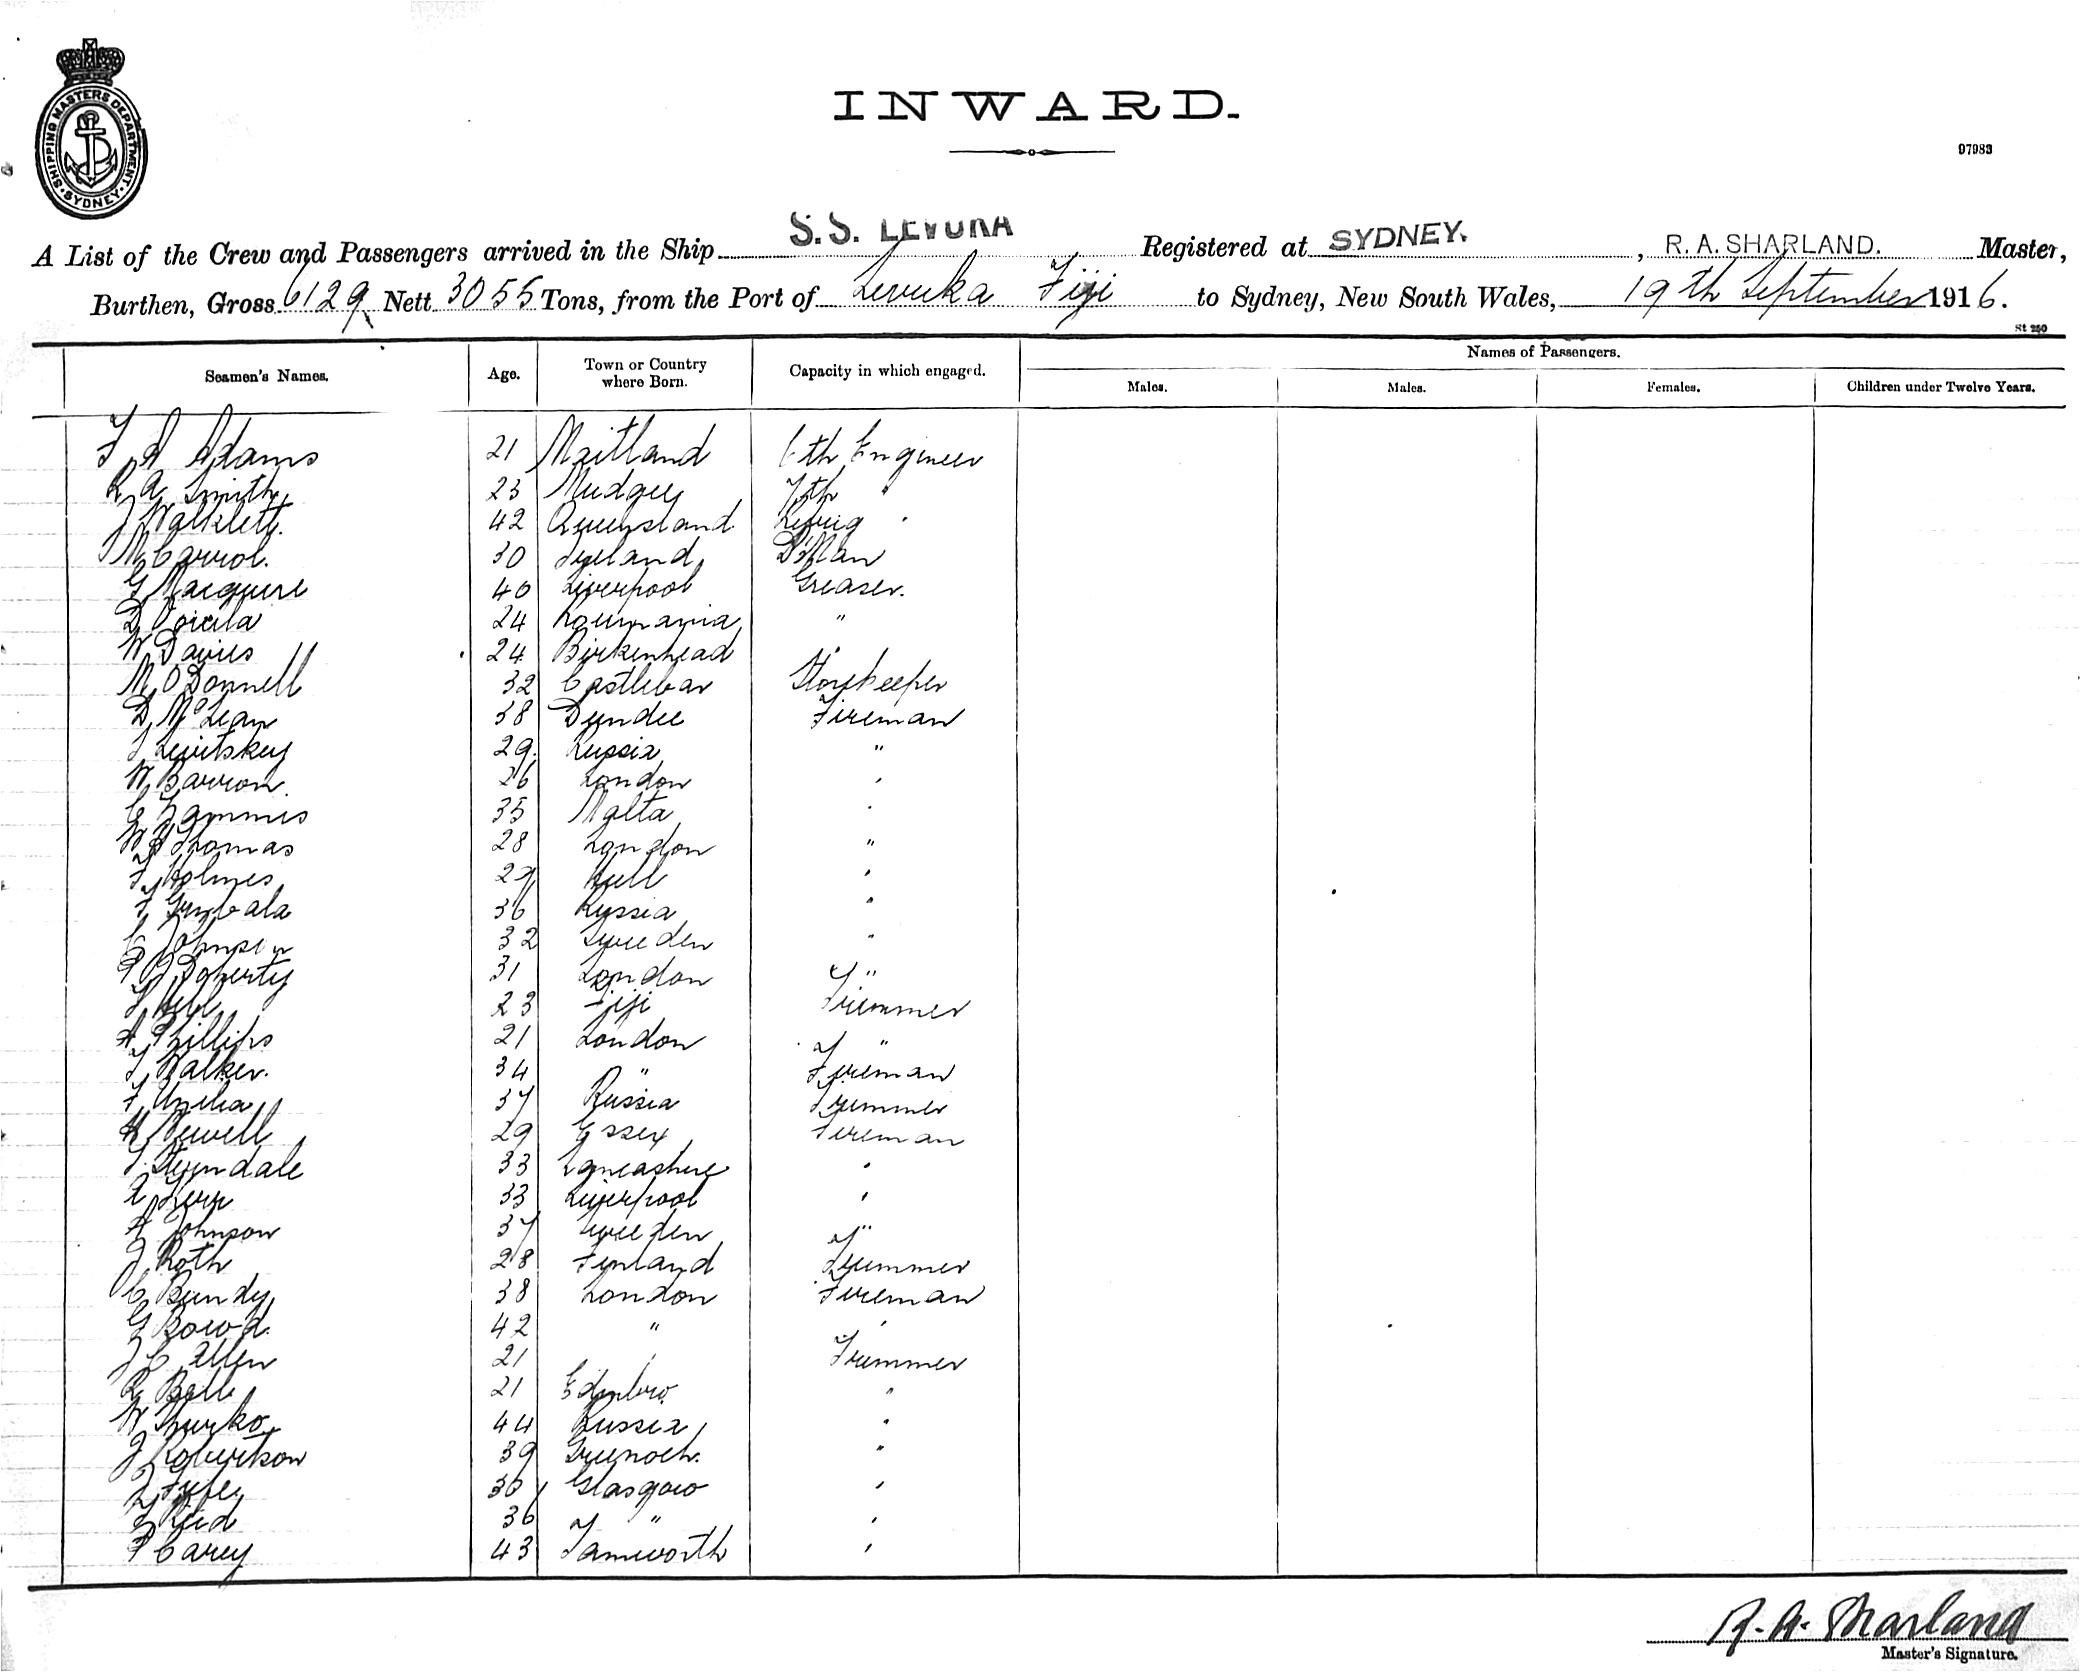 SHIPPING MASTERS DEPARTMENT. SYDNEY
INWARD.
97983
A List of the Crew and Passengers arrived in the Ship S.S. LEVUKA Registered at SYDNEY. , R. A. SHARLAND. Master,
Burthen, Gross 6129 Nett 3055 Tons, from the Port of Levuka Fiji to Sydney, New South Wales, 19th September 1916.
St 250
Names of Passengers.
Seamen's Names. Age. Town or Country where Born. Capacity in which engaged. Males. Males. Females. Children under Twelve Years.
F A Adams 21 Maitland 6th Engineer
R A Smith 23 Mudgee 7th "
J Walklett. 42 Queensland Refrig "
M Carrol. 30 Ireland D'Man
G Macquire 40 Liverpool Greaser.
D 24 Roumania "
W Davies 24 Birkenhead "
M O'Donnell 32 Castlebar Storekeeper
D McLean 38 Dundee Fireman
J Levitskey 29 Russia "
W Barron. 26 London "
C Zammis 35 Malta "
W J Thomas 28 London "
F Holmes 29 Hull "
F Gumbala 36 Russia "
C Johnson 32 Sweden "
P J Doherty 31 London "
23 Fiji Trimmer
A Phillips 21 London "
J Walker. 34 " Fireman
F 37 Russia Trimmer
H Newell 29 Essex Fireman
J Steyndale 33 Lancashire "
R Kerr 33 Liverpool "
A Johnson 37 Sweden "
J Roth 28 Finland Trimmer
C Bundy 38 London Fireman
G Bowd. 42 " "
J C Allen 21 " Trimmer
R Bell 21 Edinbro. "
W Shurko 44 Russia "
J Robertson 39 Greenock. "
Fyfe 30 Glasgow "
J Reid 36 " "
P Carey 43 Tamworth "
R. A. Sharland
Master's Signature.